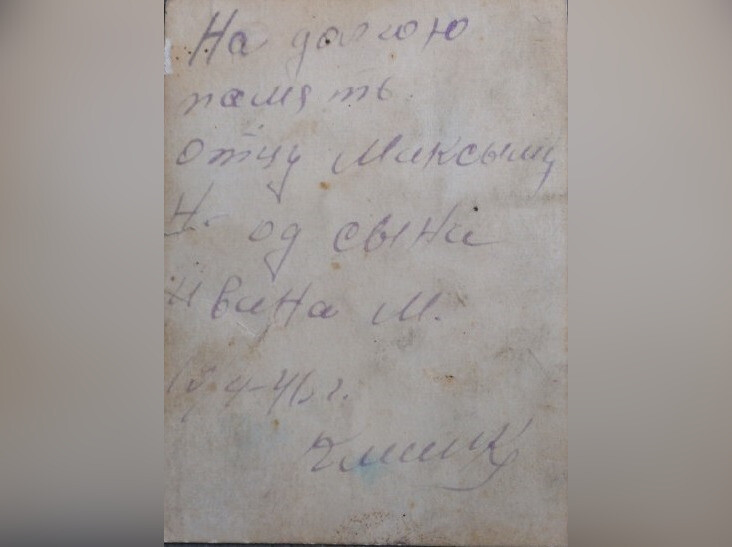 На долгою
память
отцу Максыму
Н. од сына
Ивана М.
4-46 г.